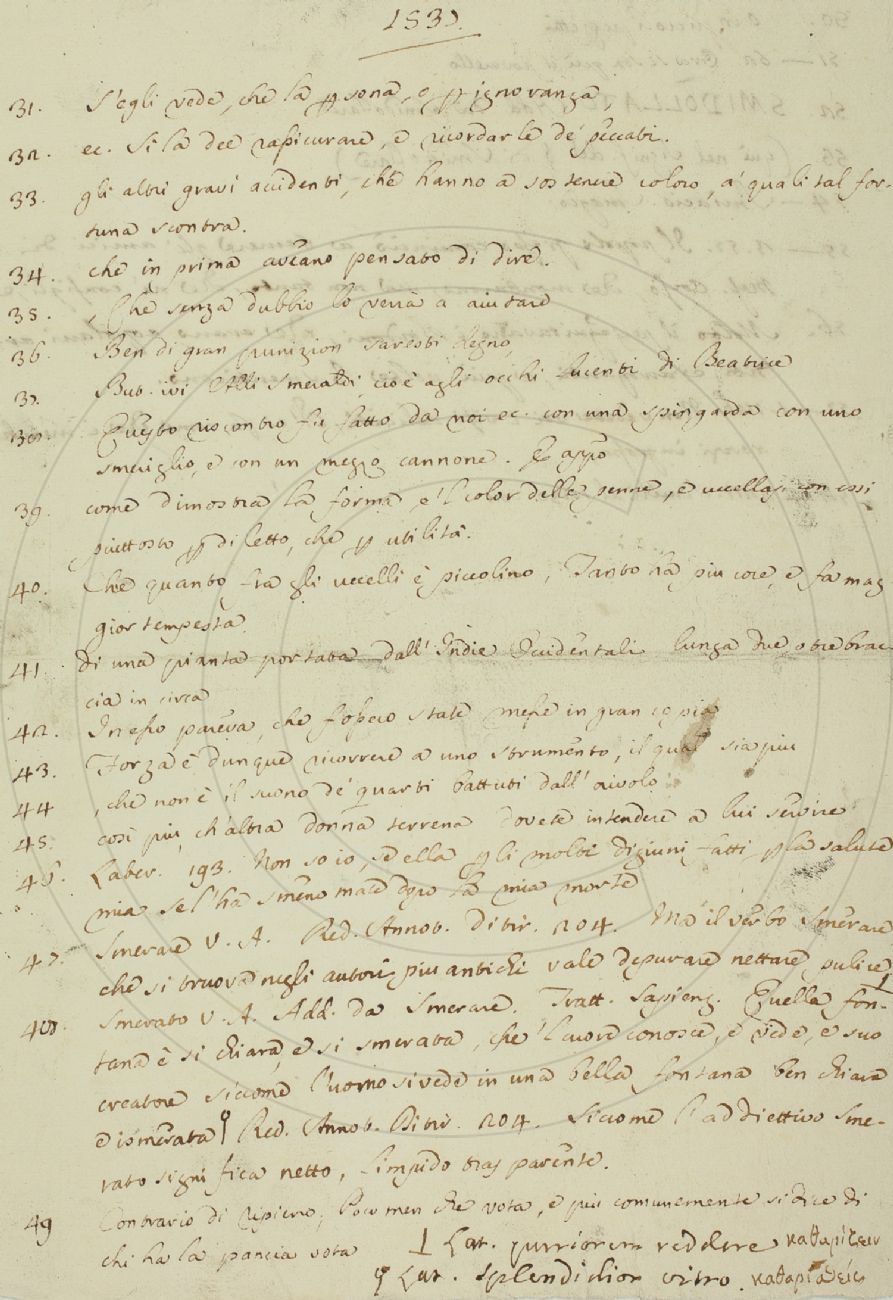 153).
31. S'egli vede, che la ꝑsona, e ꝑ ignoranza,
32. ec. Si la dee rassicurare, e ricordarle de' peccati.
33. gli altri gravi accidenti, che hanno a sostenere coloro, a' quali tal for-
tuna scontra.
34. che in prima aveano pensato di dire.
35. , Che senza dubbio lo verrà a aiutare
36. Ben di gran punizion saresti degno,
37. But. ivi Alli Smeraldi, cioè agli occhi lucenti di Beatrice
38. Questo riscontro fu fatto da noi ec. con una spingarda con uno
smeriglio, e con un mezzo cannone. E appo
39. come dimostra la forma, e 'l color delle penne, e uccellasi con essi
piuttosto ꝑ diletto, che ꝑ utilità.
40. Che quanto fra gli uccelli è piccolino, Tanto ha più core, e fa mag
gior tempesta.
41. di una pianta portata dall' Indie Occidentali lunga due, o tre brac-
cia in circa
42. In esso pareva, che fossero state messe in gran copia
43. Forza è dunque ricorrere a uno strumento, il qual sia più
44 , che non è il suono de' quarti battuti dall' oivolo
45. così più, ch'altra donna terrena dovete intendere a lui servire
46. Laber. 193. Non so io, se ella ꝑ li molti digiuni fatti ꝑ la salute
mia se l'ha smenomate dopo la mia morte
47. Smerare V. A. Red. Annot. Ditir. 204. Ma il verbo Smerare
che si truova negli autori più antichi vale depurare nettare, pulire, ⊥
48. Smerato V. A. Add. da Smerare. Tratt. Sapienz. Quella fon-
tana è sì chiara, e sì smerata, che 'l cuore conosce, e vede, e suo
creatore siccome l'uomo si vede in una bella fontana ben chiara
e ismerata Red. Annot. Ditir. 204. Siccome l'addiettivo Sme-
rato significa netto, limpido trasparente.
49 Contrario di Ripieno; Poco men che vota, e più comunemente si dice di
chi ha la pancia vota
⊥ Lat. purriorem reddere καθαρίζειν
Lat. splendidior vitro. καθαρισθείς